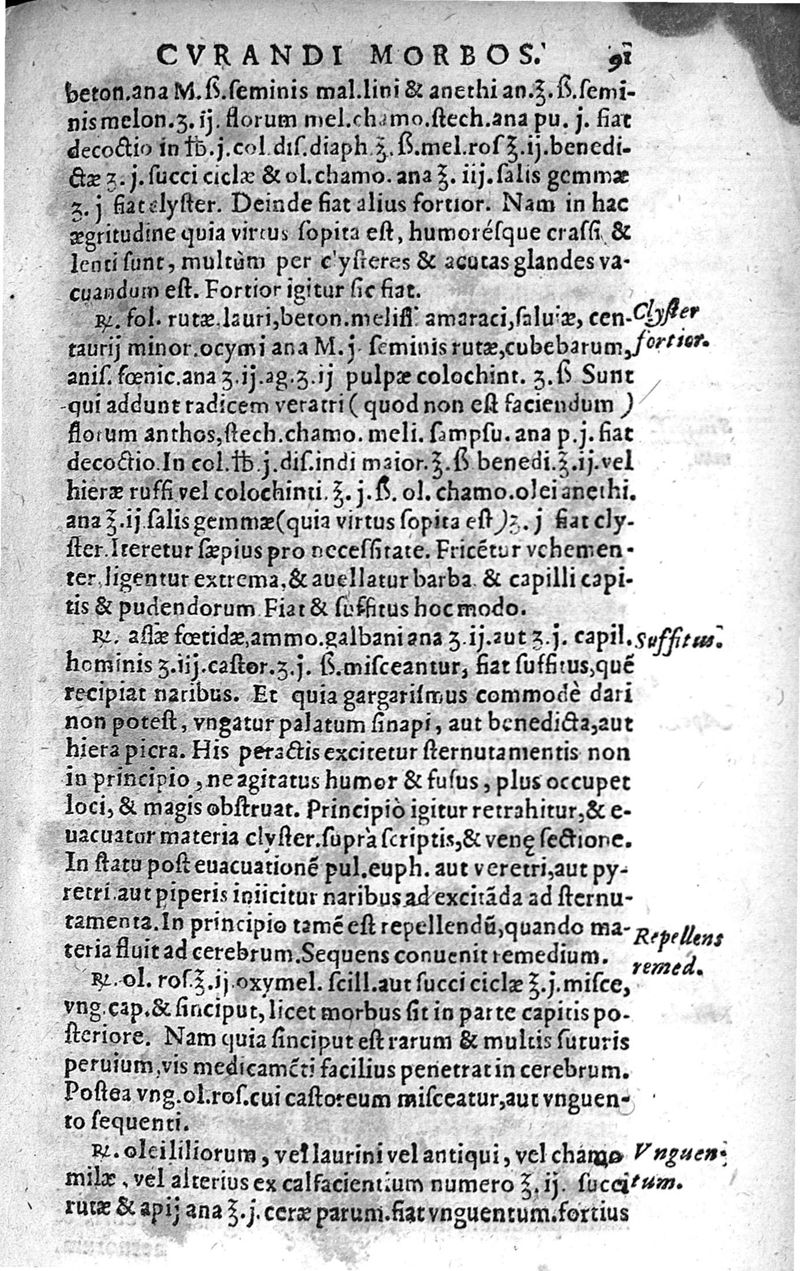 CVRANDI MORBOS. 91
beton.ana M.ß.seminis mal.lini & anethi an.ʒ.ß.semi-
nis melon.ʒ.ij. florum mel.chamo.stech.ana pu. j. fiat
decoctio in ℔.j.col.dis.diaph.℥.ß.mel.ros℥.ij.benedi-
ctæ ʒ.j.succi ciclæ & ol.chamo. ana ℥. iij.salis gemmæ
ʒ.j fiat clyster. Deinde fiat alius fortior. Nam in hac
ægritudine quia virtus sopita est, humorésque crassi &
lenti sunt, multùm per clysteres & acutas glandes va-
cuandum est. Fortior igitur sic fiat.
℞. fol. rutæ.lauri,beton.meliss. amaraci,saluiæ, cen- Clyster
taurij minor.ocymi ana M.j. seminis rutæ,cubebarum, fortior.
anis.fœnic.ana ʒ.ij.ag.ʒ.ij pulpæ colochint. ʒ.ß Sunt
qui addunt radicem veratri ( quod non est faciendum )
florum anthos,stech.chamo. meli. sampsu. ana p.j. fiat
decoctio.In col.℔.j.dis.indi maior.℥.ß benedi.℥.ij.vel
hieræ ruffi vel colochinti.℥.j.ß. ol. chamo.olei anethi.
ana ℥.ij salis gemmæ(quia virtus sopita est)ʒ. j fiat cly-
ster.Iteretur sæpius pro necessitate. Fricētur vehemen-
ter,ligentur extrema,& auellatur barba & capilli capi-
tis & pudendorum Fiat & suffitus hoc modo.
℞. assæ fœtidæ,ammo.galbani ana ʒ.ij.aut ʒ.j. capil. Suffitus.
hominis ʒ.iij.castor.ʒ.j. ß.misceantur, fiat suffitus,quē
recipiat naribus. Et quia gargarismus commodè dari
non potest, vngatur palatum sinapi, aut benedicta,aut
hiera picra. His peractis excitetur sternutamentis non
in principio, ne agitatus humor & fusus, plus occupet
loci, & magis obstruat. Principiò igitur retrahitur,& e-
uacuatur materia clyster.suprà scriptis,& venę sectione.
In statu post euacuationē pul.euph. aut veretri,aut py-
retri.aut piperis iniicitur naribus ad excitāda ad sternu-
tamenta.In principio tamē est repellendū,quando ma- Repellens
teria fluit ad cerebrum.Sequens conuenit remedium. remed.
℞. ol. ros.℥.ij.oxymel. scill.aut succi ciclæ ℥.j.misce,
vng.cap.& sinciput, licet morbus sit in parte capitis po-
steriore. Nam quia sinciput est rarum & multis suturis
peruium,vis medicamēti facilius penetrat in cerebrum.
Postea vng.ol.ros.cui castoreum misceatur,aut vnguen-
to sequenti.
℞. olei liliorum, vel laurini vel antiqui, vel chamo Vnguen-
milæ, vel alterius ex calfacientium numero ℥. ij. succi tum.
rutæ & apij ana ℥.j.ceræ parum.fiat vnguentum.fortius